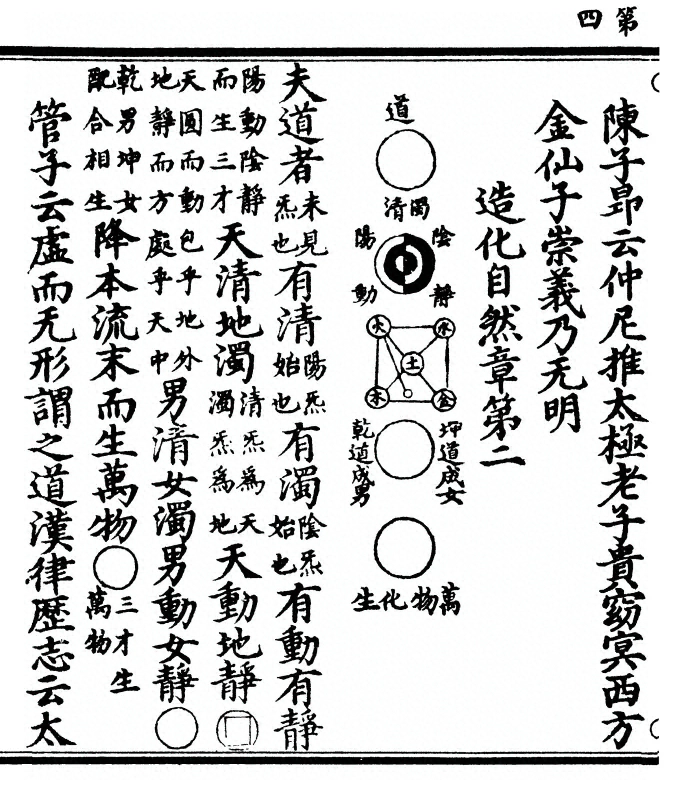 第四
陳子昻云仲尼推太極老子貴窈冥西方
金仙子崇義乃无明
造化自然章第二
道
濁清
陰靜
陽動
水火
土
金木
坤道成女
乾道成男
萬物化生
夫道者未見炁也有清陽炁始也有濁陰炁始也有動有靜
陽動陰靜而生三才天清地濁清炁爲天濁炁爲地天動地靜
天圓而動包乎地外地靜而方處乎天中男清女濁男動女靜
乾男坤女配合相生降本流末而生萬物三才生萬物
管子云虛而无形謂之道漢律歷志云太